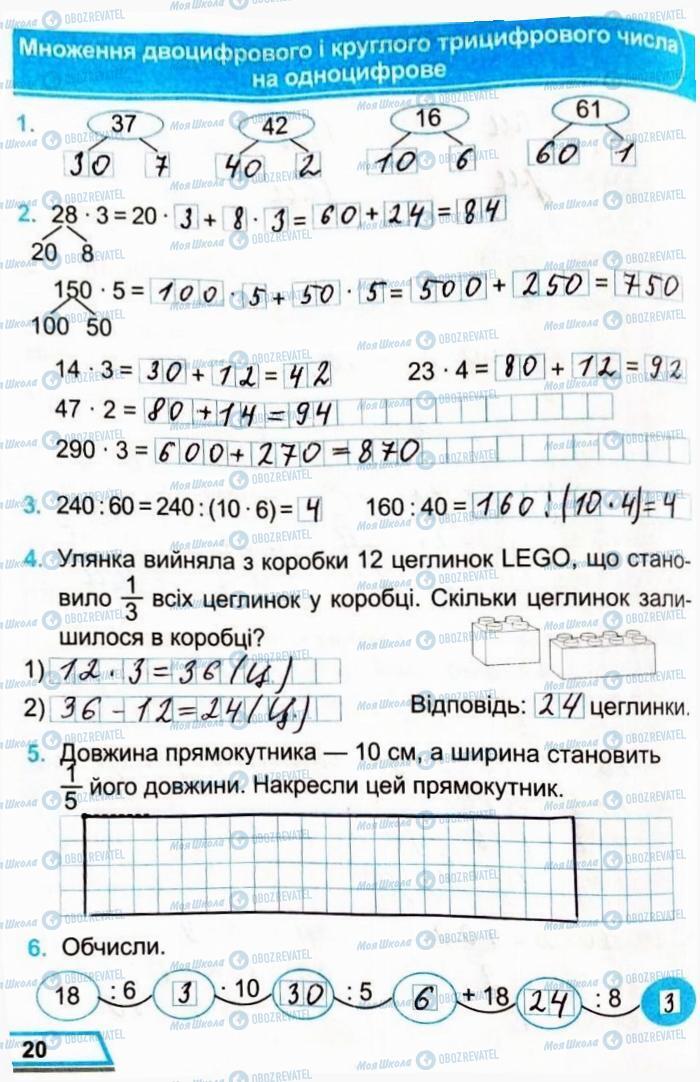 Множення двоцифрового і круглого трицифрового числа
на одноцифрове
1. 37 42 16 61
30 7 40 2 10 6 60 1
2. 28 · 3 = 20 · 3 + 8 · 3 = 60 + 24 = 84
20 8
150 · 5 = 100 · 5 + 50 · 5 = 500 + 250 = 750
100 50
14 · 3 = 30 + 12 = 42 23 · 4 = 80 + 12 = 92
47 · 2 = 80 + 14 = 94
290 · 3 = 600 + 270 = 870
3. 240 : 60 = 240 : (10 · 6) = 4 160 : 40 = 160 : (10 · 4) = 4
4. Улянка вийняла з коробки 12 цеглинок LEGO, що стано-
вило 1/3 всіх цеглинок у коробці. Скільки цеглинок зали-
шилося в коробці?
1) 12 · 3 = 36 (ц)
2) 36 - 12 = 24 (ц) Відповідь: 24 цеглинки.
5. Довжина прямокутника — 10 см, а ширина становить
1/5 його довжини. Накресли цей прямокутник.
6. Обчисли.
18 : 6 3 · 10 30 : 5 6 + 18 24 : 8 3
20
Моя Школа OBOZREVATEL